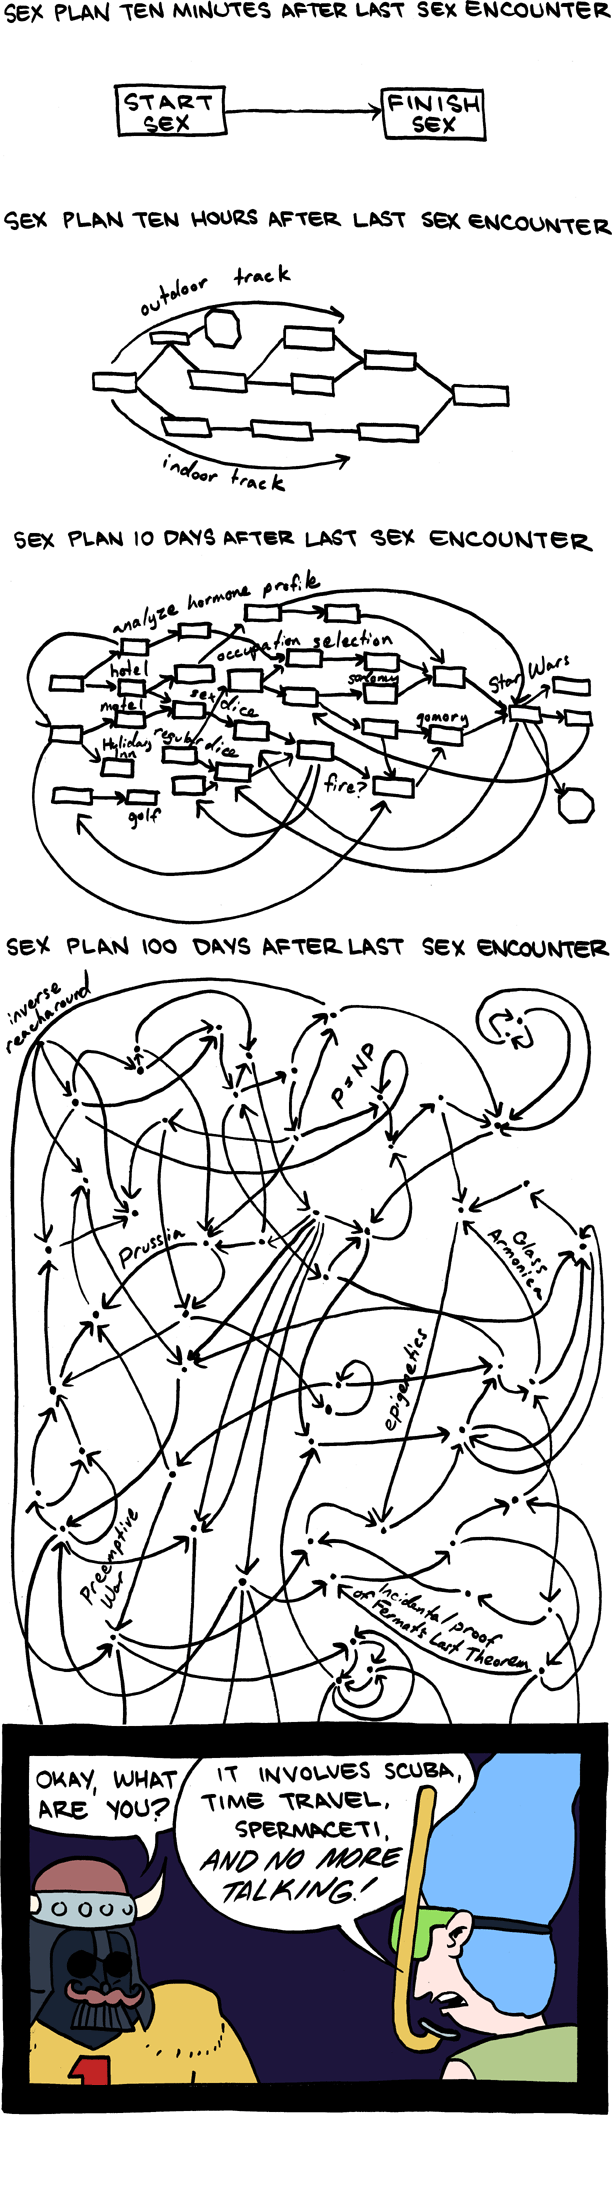 SEX PLAN TEN MINUTES AFTER LAST SEX ENCOUNTER
START
SEX
FINISH
SEX
SEX PLAN TEN HOURS AFTER LAST SEX ENCOUNTER
outdoor track
indoor track
SEX PLAN 10 DAYS AFTER LAST SEX ENCOUNTER
analyze hormone profile
occupation selection
hotel
sodomy
Star Wars
motel
sex dice
gomory
Holiday
Inn
regular dice
fire?
golf
SEX PLAN 100 DAYS AFTER LAST SEX ENCOUNTER
inverse
reacharound
P=NP
Prussia
Glass
Armonica
epigenetics
Preemptive
War
Incidental proof
of Fermat's Last Theorem
OKAY, WHAT
ARE YOU?
IT INVOLVES SCUBA,
TIME TRAVEL,
SPERMACETI,
AND NO MORE
TALKING!
1